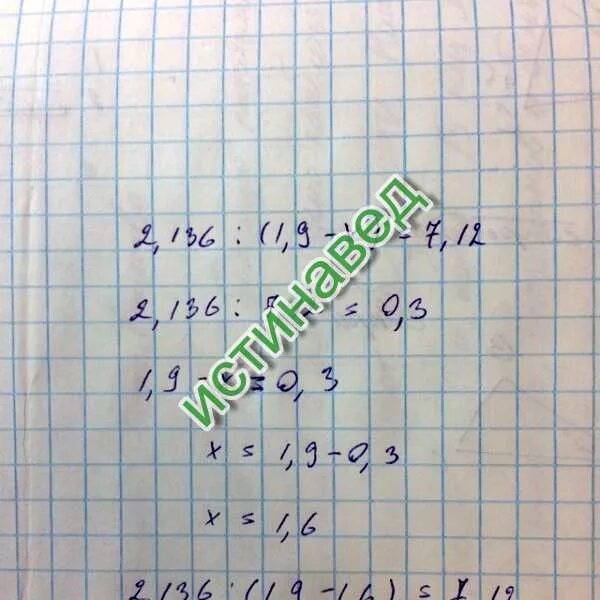 2,136 : (1,9 - = 7,12
2,136 : = 0,3
1,9 - x = 0,3
x = 1,9 - 0,3
x = 1,6
2,136 : (1,9 - 1,6) = 7,12
истинавед